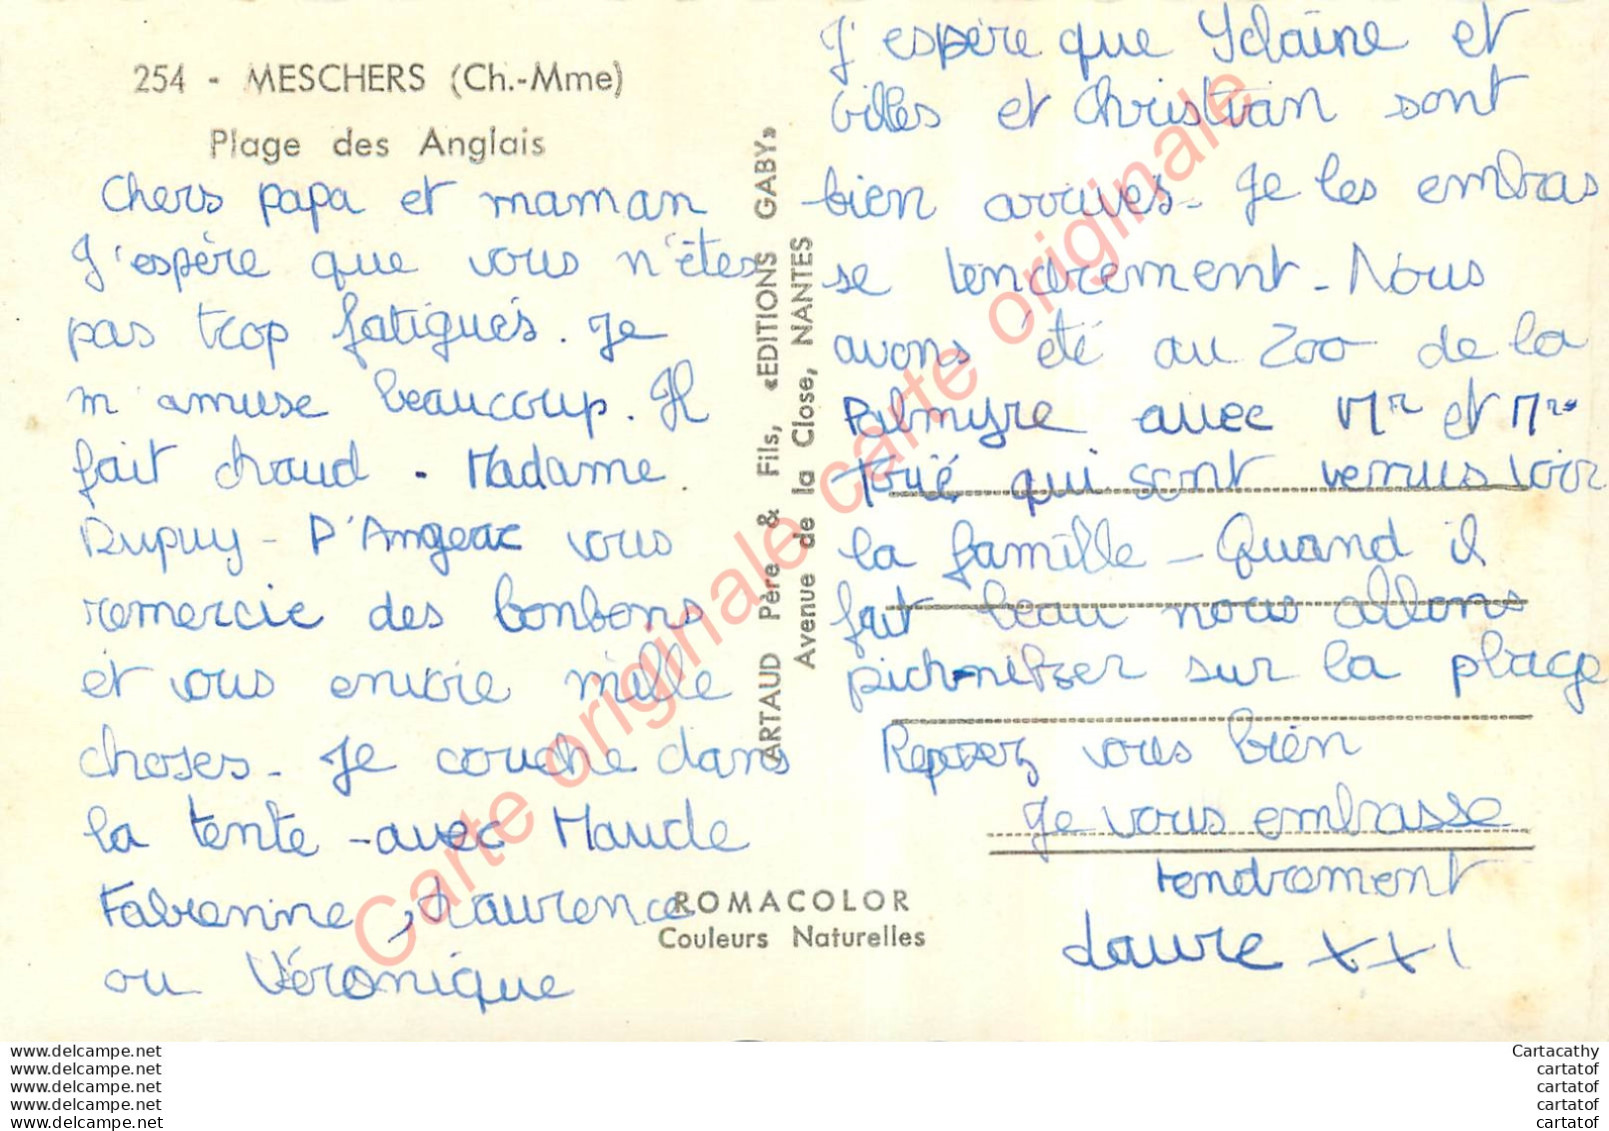 254 - MESCHERS (Ch.-Mme)
Plage des Anglais
Chers papa et maman
J'espère que vous n'êtes
pas trop fatigués. Je
m'amuse beaucoup. Il
fait chaud - Madame
Dupuy - D'Angeac vous
remercie des bonbons
et vous envoie mille
choses - Je couche dans
la tente - avec Maude
Fabienne, Laurence
ou Véronique
ARTAUD Père & Fils, «EDITIONS GABY»
Avenue de la Close, NANTES
ROMACOLOR
Couleurs Naturelles
J'espère que Ydaine et
Gilles et Christian sont
bien arrivés - Je les embras
se tendrement - Nous
avons été au Zoo de la
Palmyre avec Mr et Mme
qui sont venus voir
la famille - Quand il
fait beau nous allons
sur la plage
Reposez vous bien
Je vous embrasse
tendrement
Laure XXX
Carte originale carte originale carte originale
www.delcampe.net
www.delcampe.net
www.delcampe.net
www.delcampe.net
www.delcampe.net
Cartacathy
cartatof
cartatof
cartatof
cartatof